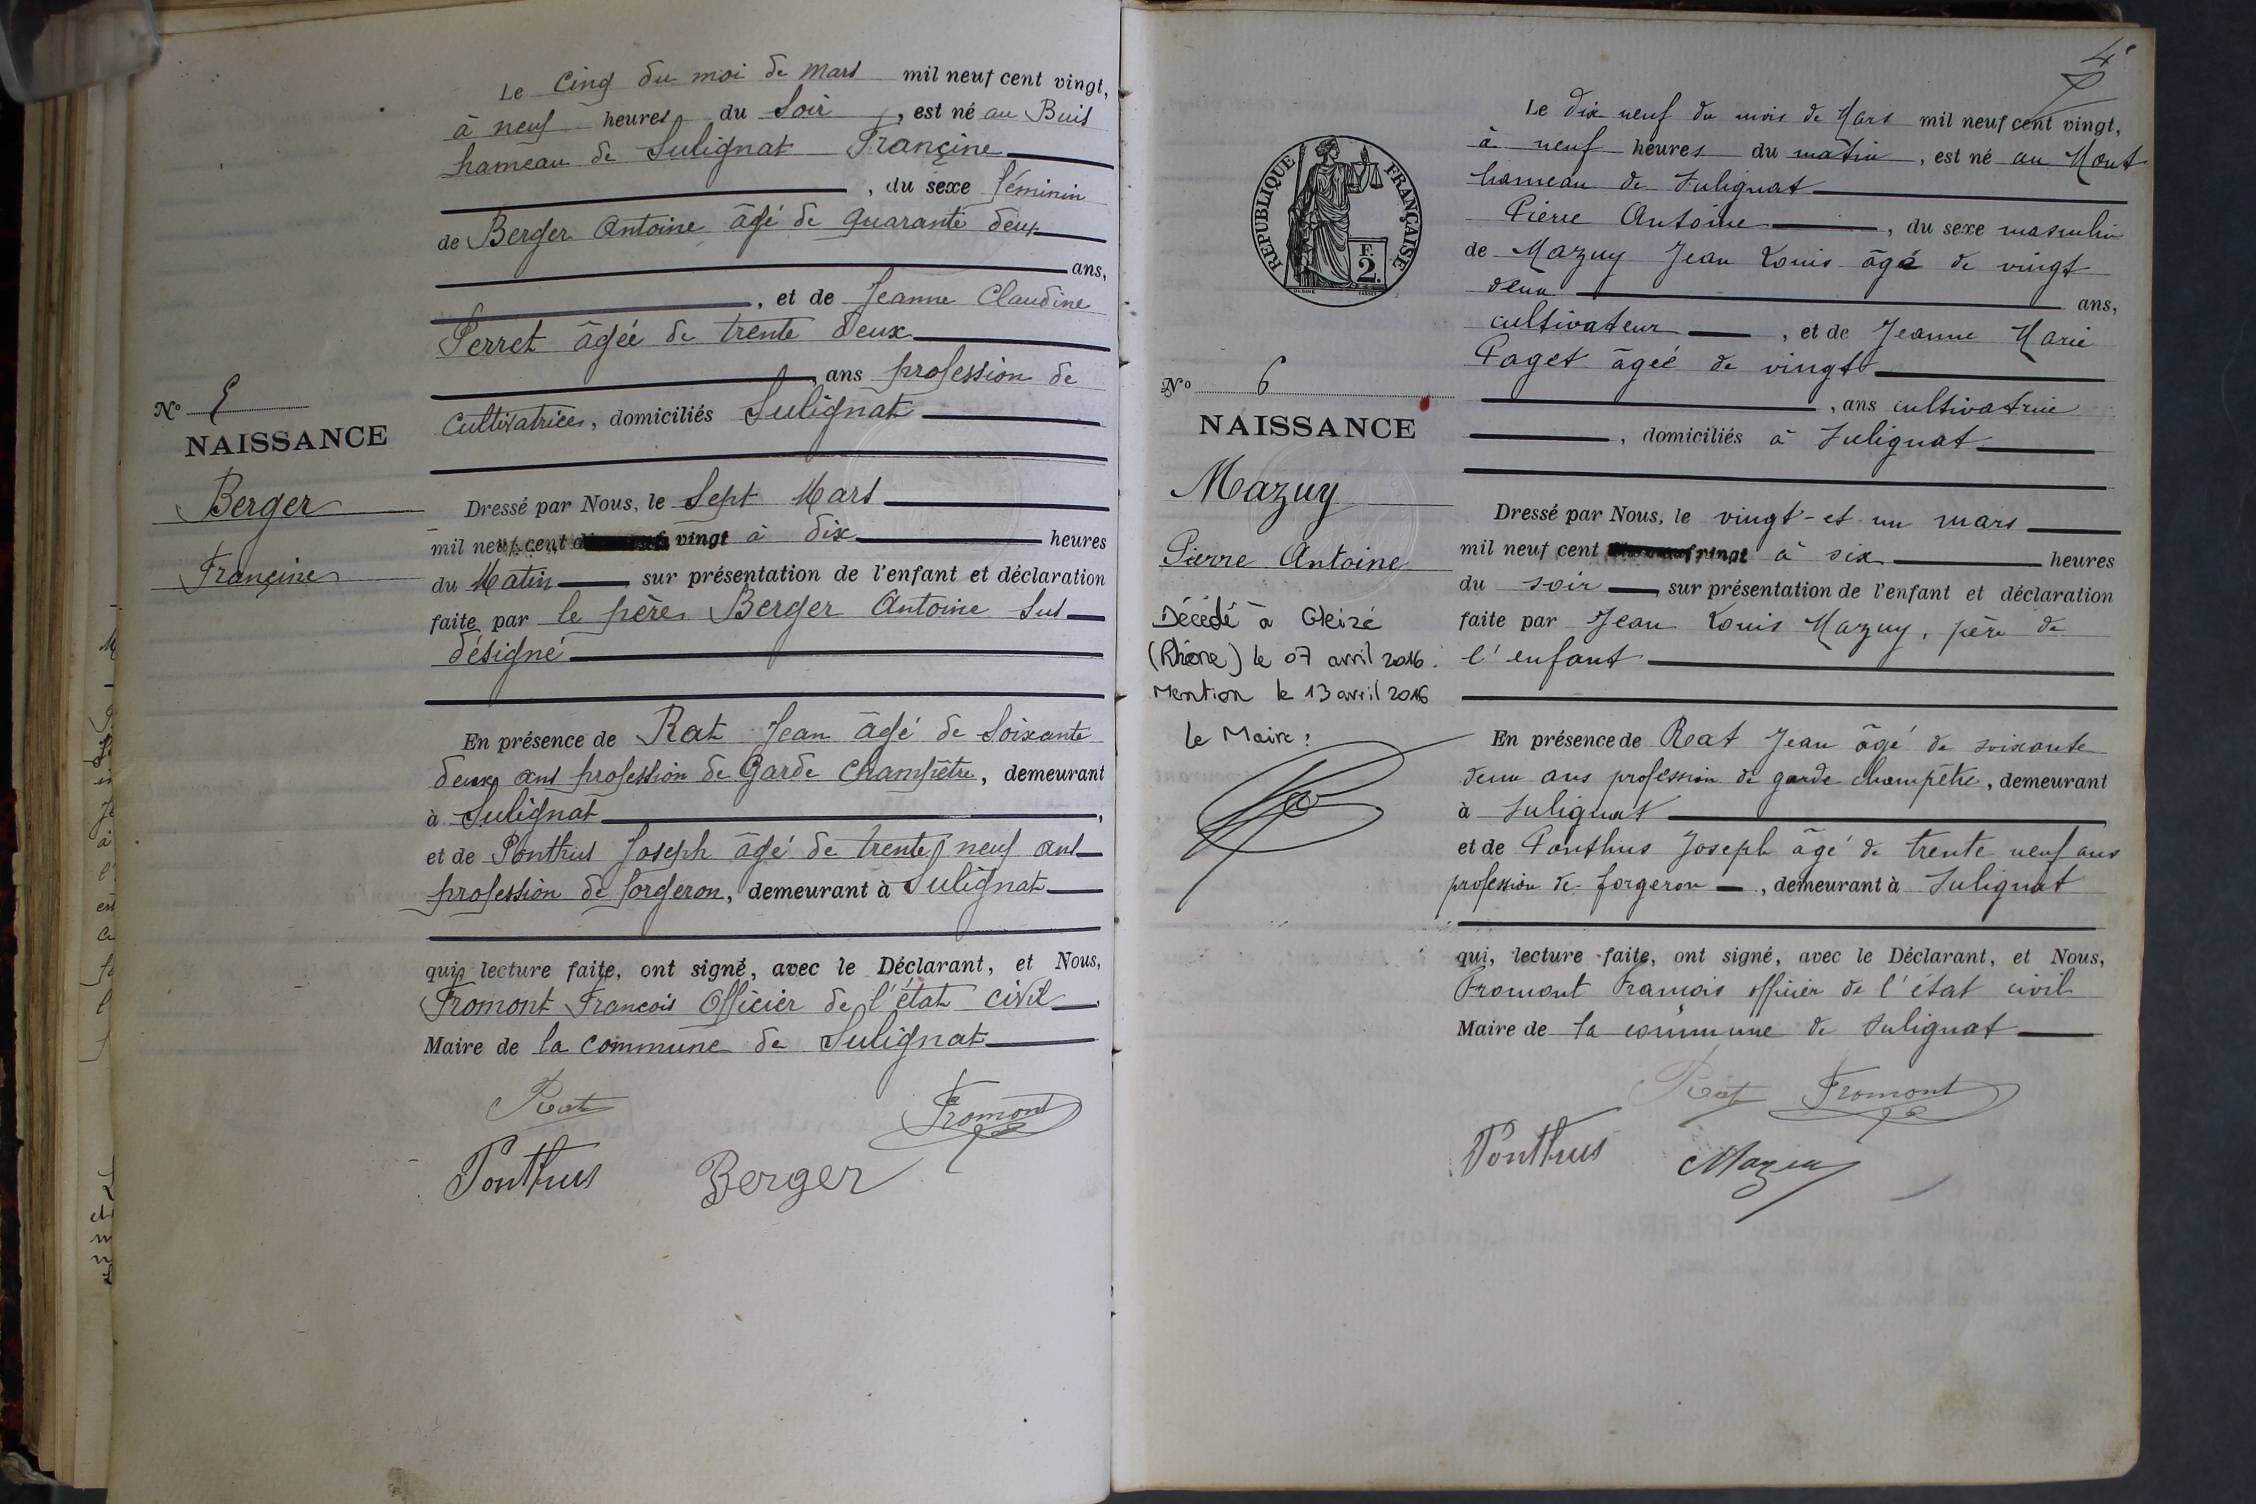 Le Cinq du moi de Mars mil neuf cent vingt,
à neuf heures du Soir, est né au Buis
hameau de Sulignat Françine
, du sexe féminin
de Berger Antoine âgé de quarante deux
ans,
, et de Jeanne Claudine
Perret âgée de trente deux
, ans profession de
Cultivatrices, domiciliés Sulignat
N° 5
NAISSANCE
Berger
Françine
Dressé par Nous, le Sept Mars
mil neuf cent vingt à dix heures
du Matin sur présentation de l'enfant et déclaration
faite par le père Berger Antoine Sus
désigné
En présence de Rat Jean âgé de Soixante
deux ans profession de Garde Champêtre, demeurant
à Sulignat,
et de Ponthus Joseph âgé de trente neuf ans
profession de forgeron, demeurant à Sulignat
qui, lecture faite, ont signé, avec le Déclarant, et Nous,
Fromont Francois Officier de l'état civil
Maire de la commune de Sulignat
Rat
Fromont
Ponthus Berger
4e
REPUBLIQUE FRANÇAISE
F.
2.
Le dix neuf du mois de Mars mil neuf cent vingt,
à neuf heures du matin, est né au Mont
hameau de Sulignat
Pierre Antoine, du sexe masculin
de Mazuy Jean Louis âgé de vingt
deux ans,
cultivateur, et de Jeanne Marie
Paget âgée de vingt
, ans cultivatrice
, domiciliés à Sulignat
N° 6
NAISSANCE
Mazuy
Pierre Antoine
Décédé à Gleizé
(Rhône) le 07 avril 2016.
Mention le 13 avril 2016
Le Maire :
Dressé par Nous, le vingt-et un mars
mil neuf cent vingt à six heures
du soir, sur présentation de l'enfant et déclaration
faite par Jean Louis Mazuy, père de
l'enfant
En présence de Rat Jean âgé de soixante
deux ans profession de garde champêtre, demeurant
à Sulignat
et de Ponthus Joseph âgé de trente neuf ans
profession de forgeron, demeurant à Sulignat
qui, lecture faite, ont signé, avec le Déclarant, et Nous,
Fromont François officier de l'état civil
Maire de la commune de Sulignat
Rat Fromont
Ponthus Mazuy